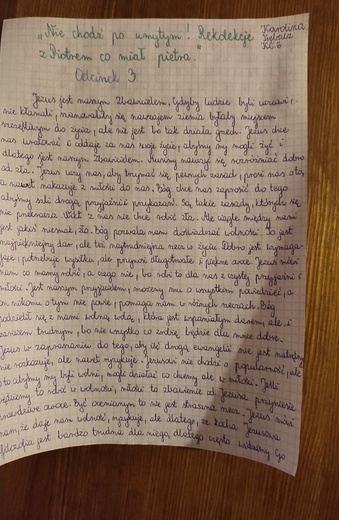 „Nie chodź po umytym! Rekolekcje
z Piotrem co miał pietra."
Karolina
Kl. 6
Odcinek 3
Jezus jest naszym Zbawicielem, Gdyby ludzie byli uczciwi,
nie kłamali, ziemia byłaby miejscem
szczęśliwym do życia, ale nie jest bo tak działa grzech. Jezus chce
nas uratować i oddaje za nas swoje życie, abyśmy my mogli żyć i
dlatego jest naszym Zbawicielem. Musimy nauczyć się rozróżniać dobro
od zła. Jezus uczy nas, aby trzymać się pewnych zasad, prosi nas o to,
a nawet nakazuje z miłości do nas. Bóg chce nas zaprosić do tego
abyśmy szli drogą przyjaźni i przykazań. Są takie zasady, których się
nie przekracza. Nikt z nas nie chce robić zła. Ale ciągle między nami
jest jakiś niesmak, zło. Bóg pozwala nam doświadczać wolności. To jest
najpiękniejszy dar, ale też najtrudniejsza rzecz w życiu. Dobro jest wymaga-
jące, potrzebuje wysiłku, ale przynosi długotrwałe i piękne owoce. Jezus mówi
nam co mamy robić, a czego nie, bo robi to dla nas z czystej przyjaźni i
miłości. Jest naszym przyjacielem, możemy mu o wszystkim powiedzieć, a
on nikomu o tym nie powie, pomaga nam w różnych rzeczach. Bóg
podzielił się z nami wolną wolą, która jest wspaniałym darem, ale i
zarazem trudnym, bo nie wszystko co zrobię będzie dla mnie dobre.
Jezus w zapraszaniu do tego, aby iść drogą ewangelii nie jest
nie rozkazuje, ale nawet ryzykuje. Jezusowi nie chodzi o popularność, ale
o to abyśmy my byli wolni, mogli działać co chcemy ale w miłości. Jeśli
będziemy to robić w wolności, miłość to zbawienie od Jezusa przyniesie
prawdziwe owoce. Być ocenianym to nie jest straszna rzecz. Jezus mówi
nam, że daje nam wolność, ryzykuje, ale dlatego, że kocha. Jezusowa
filozofia jest bardzo trudna dla niego, dlatego często widzimy Go